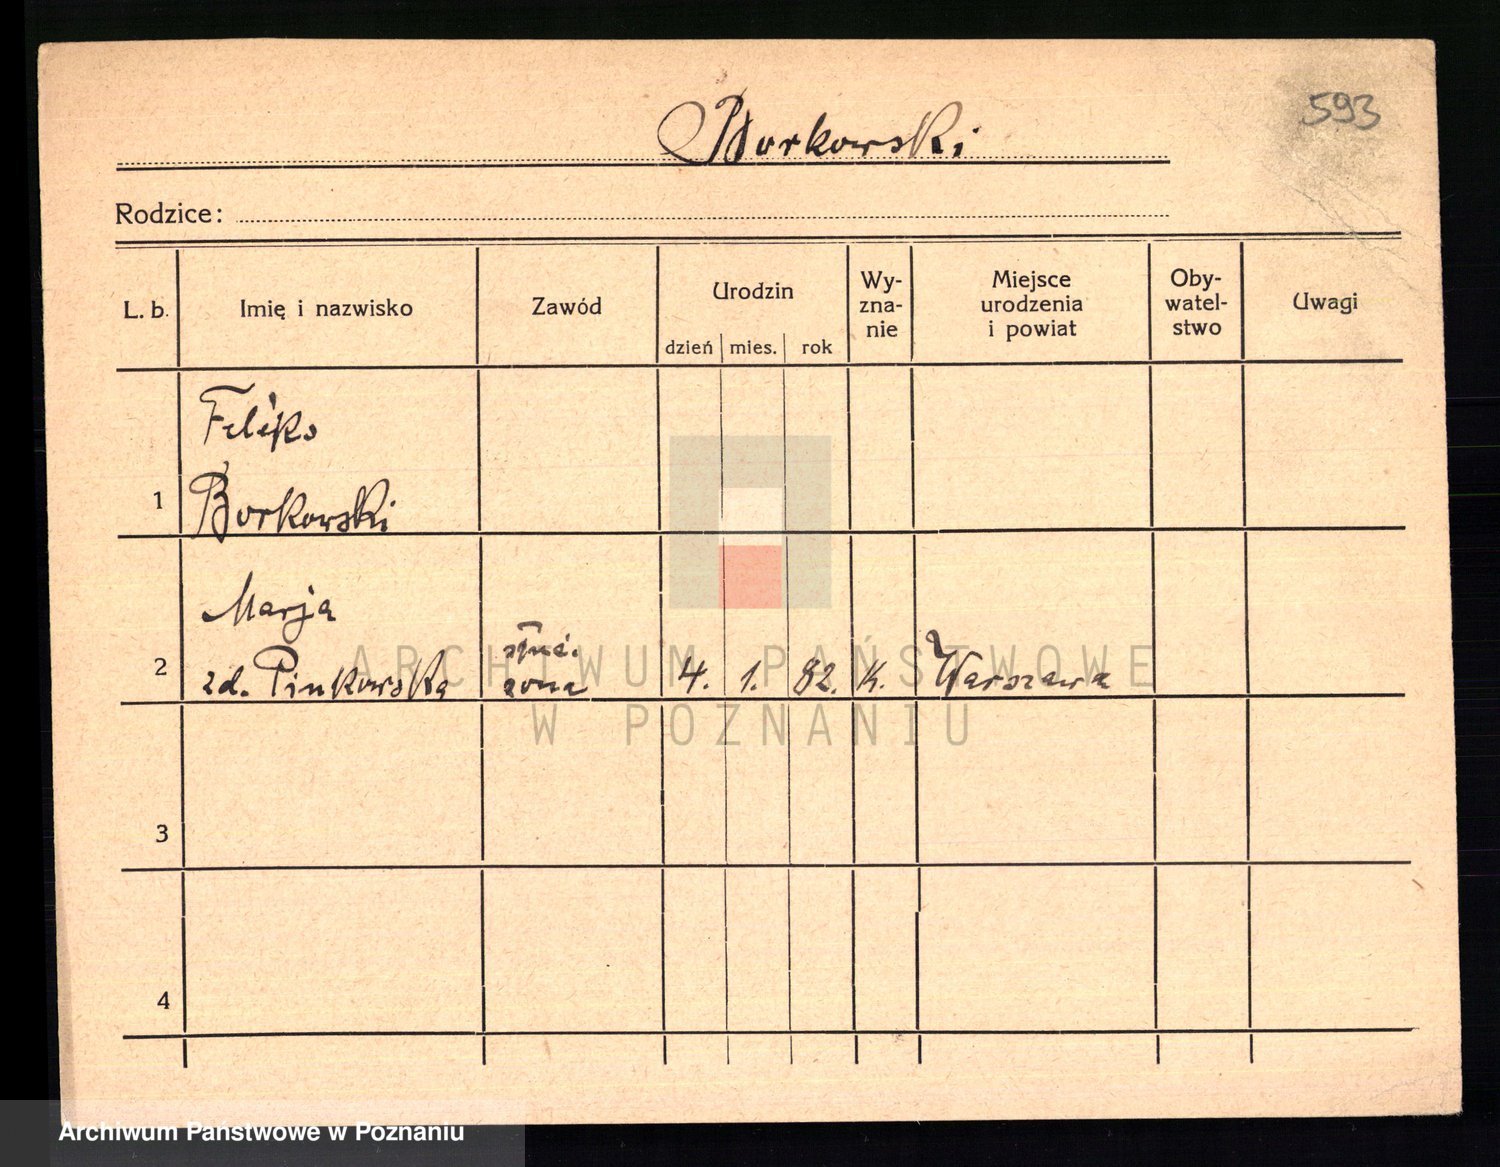 593
Borkowski
Rodzice:
L. b.
Imię i nazwisko
Zawód
Urodzin
dzień mies. rok
Wy-
zna-
nie
Miejsce
urodzenia
i powiat
Oby-
watel-
stwo
Uwagi
1
Feliks
Borkowski
2
Marja
zd. Pinkowska
4. 1. 82. K. Warszawa
3
4
ARCHIWUM PAŃSTWOWE
W POZNANIU
Archiwum Państwowe w Poznaniu